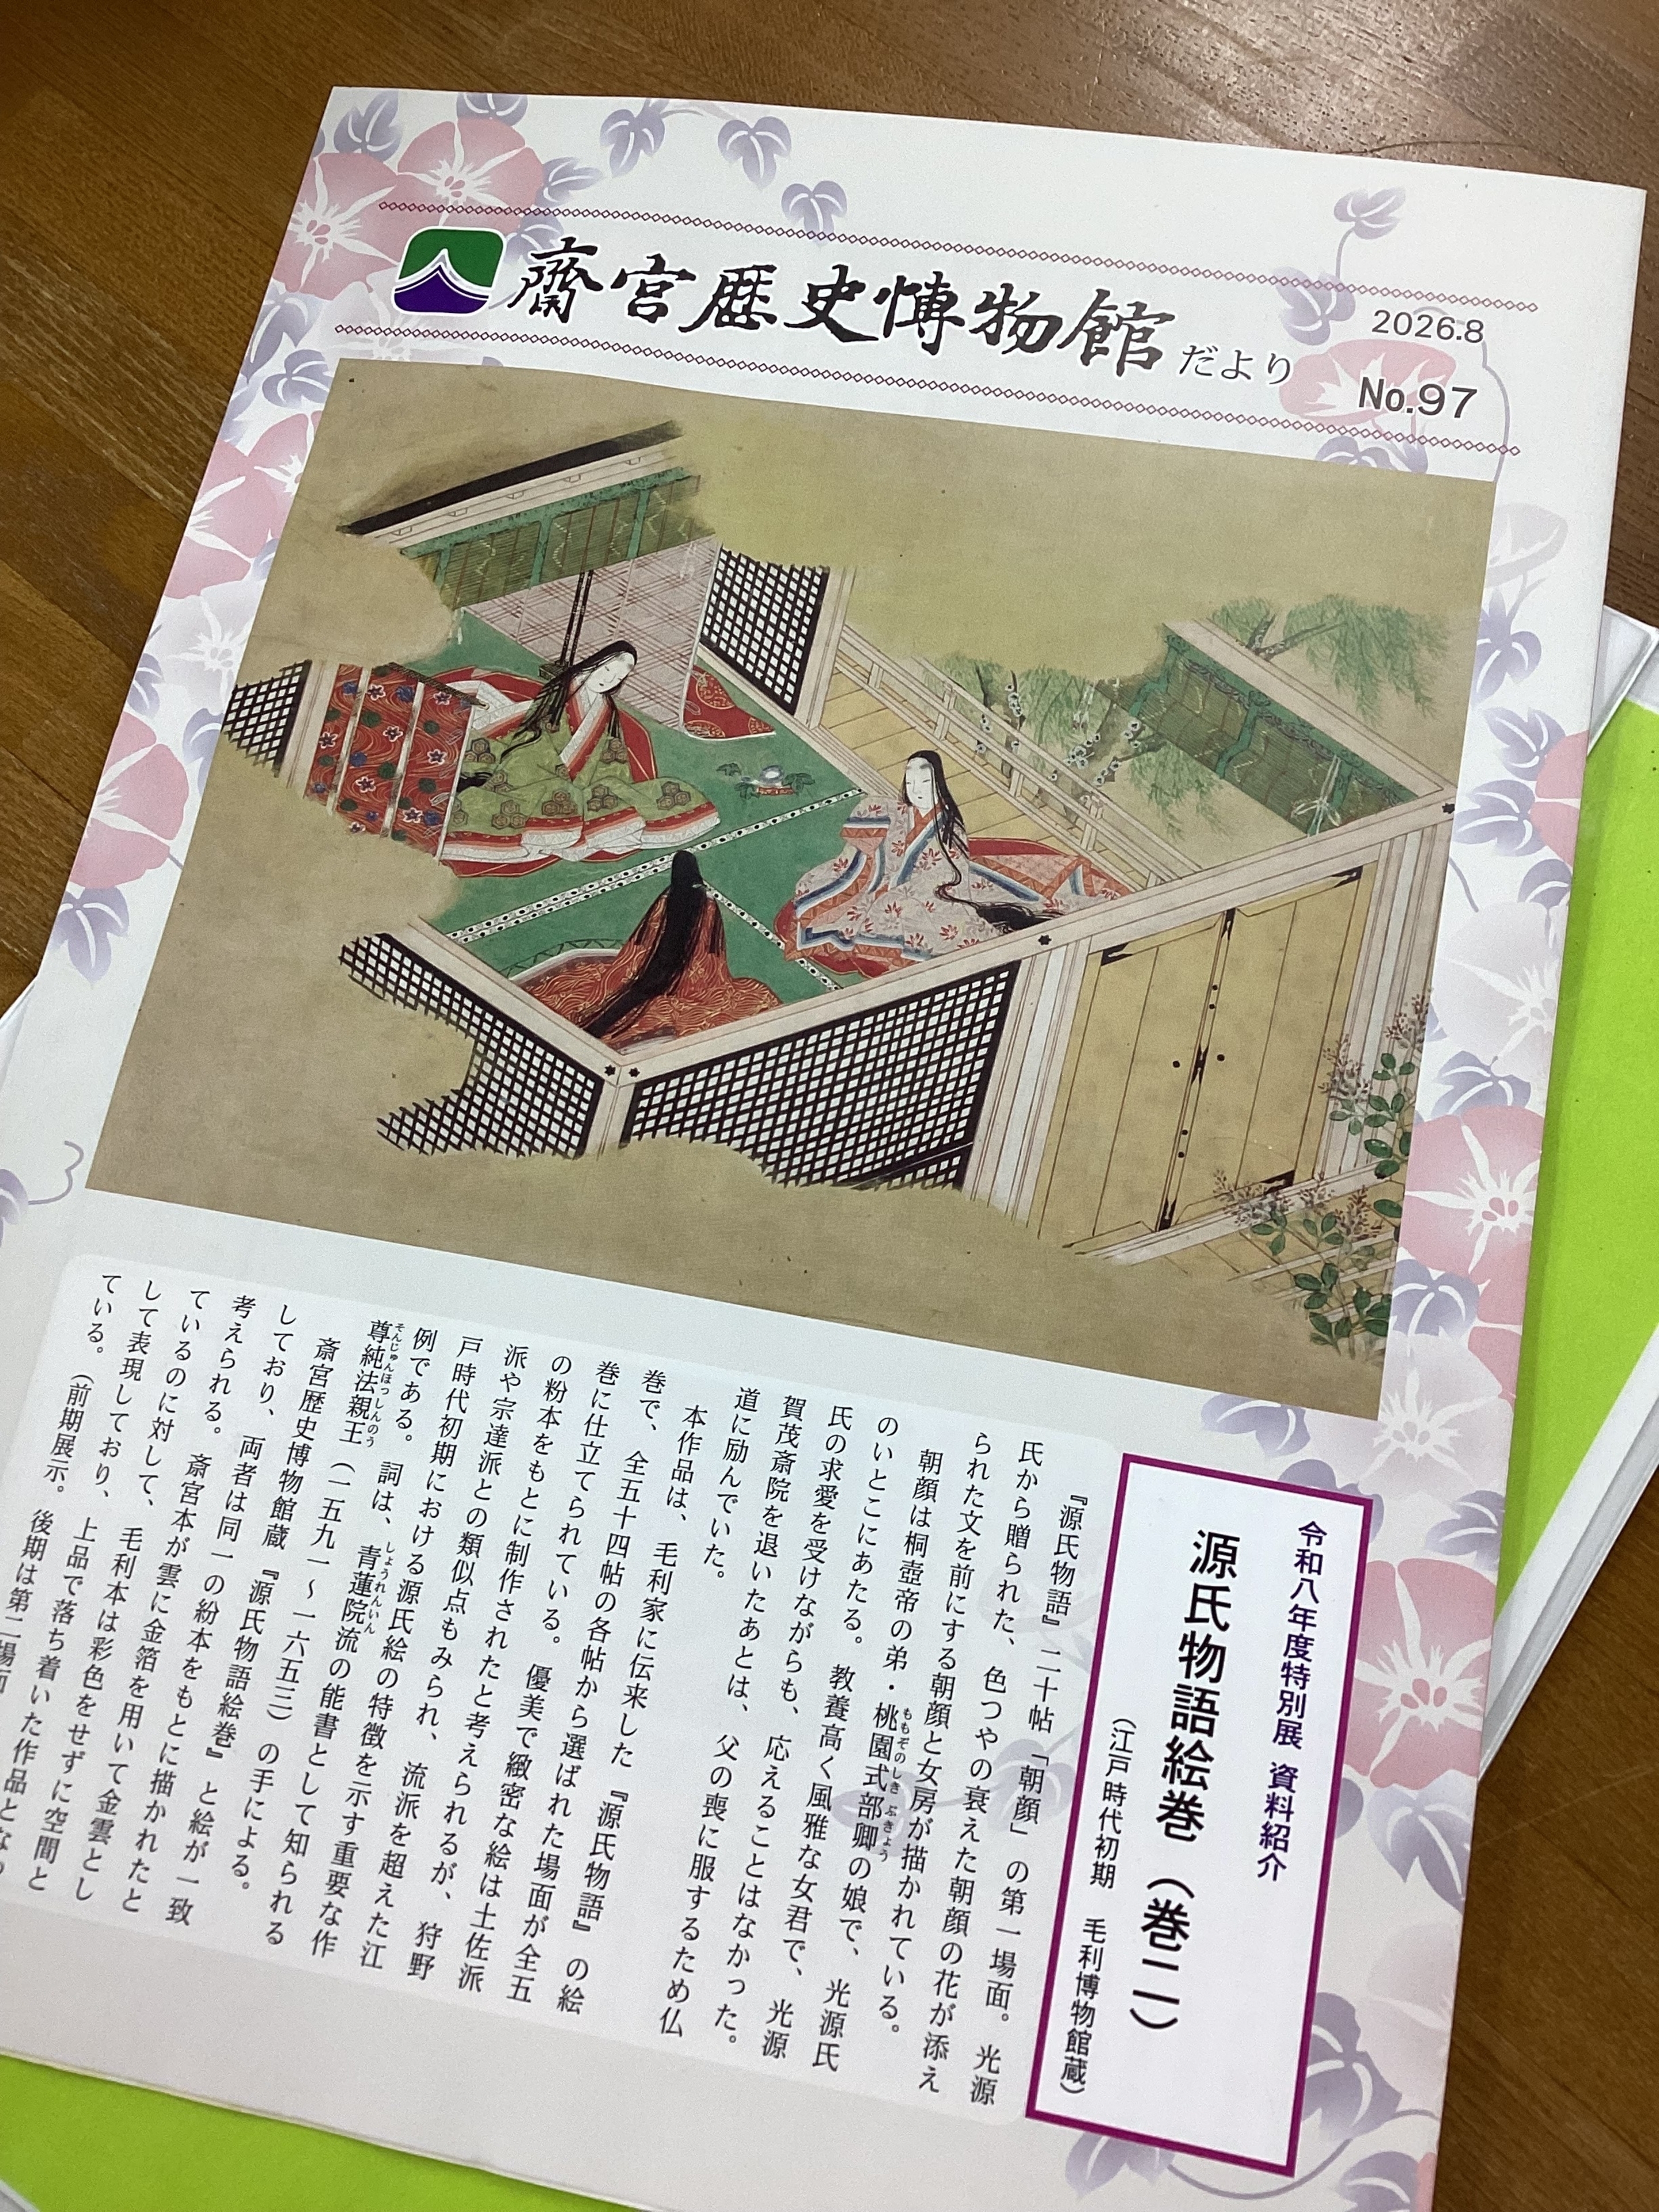 齋宮歴史博物館だより
2026.8
No.97
令和八年度特別展 資料紹介
源氏物語絵巻（巻二）
（江戸時代初期 毛利博物館蔵）
『源氏物語』二十帖「朝顔」の第一場面。光源
氏から贈られた、色つやの衰えた朝顔の花が添え
られた文を前にする朝顔と女房が描かれている。
朝顔は桐壺帝の弟・桃園式部卿の娘で、光源氏
のいとこにあたる。教養高く風雅な女君で、光源
氏の求愛を受けながらも、応えることはなかった。
賀茂斎院を退いたあとは、父の喪に服するため仏
道に励んでいた。
本作品は、毛利家に伝来した『源氏物語』の絵
巻で、全五十四帖の各帖から選ばれた場面が全五
巻に仕立てられている。優美で緻密な絵は土佐派
の粉本をもとに制作されたと考えられるが、狩野
派や宗達派との類似点もみられ、流派を超えた江
戸時代初期における源氏絵の特徴を示す重要な作
例である。詞は、青蓮院流の能書として知られる
尊純法親王（一五九一～一六五三）の手による。
斎宮歴史博物館蔵『源氏物語絵巻』と絵が一致
しており、両者は同一の紛本をもとに描かれたと
考えられる。斎宮本が雲に金箔を用いて金雲とし
ているのに対して、毛利本は彩色をせずに空間と
して表現しており、上品で落ち着いた作品となっ
ている。（前期展示。後期は第二場面